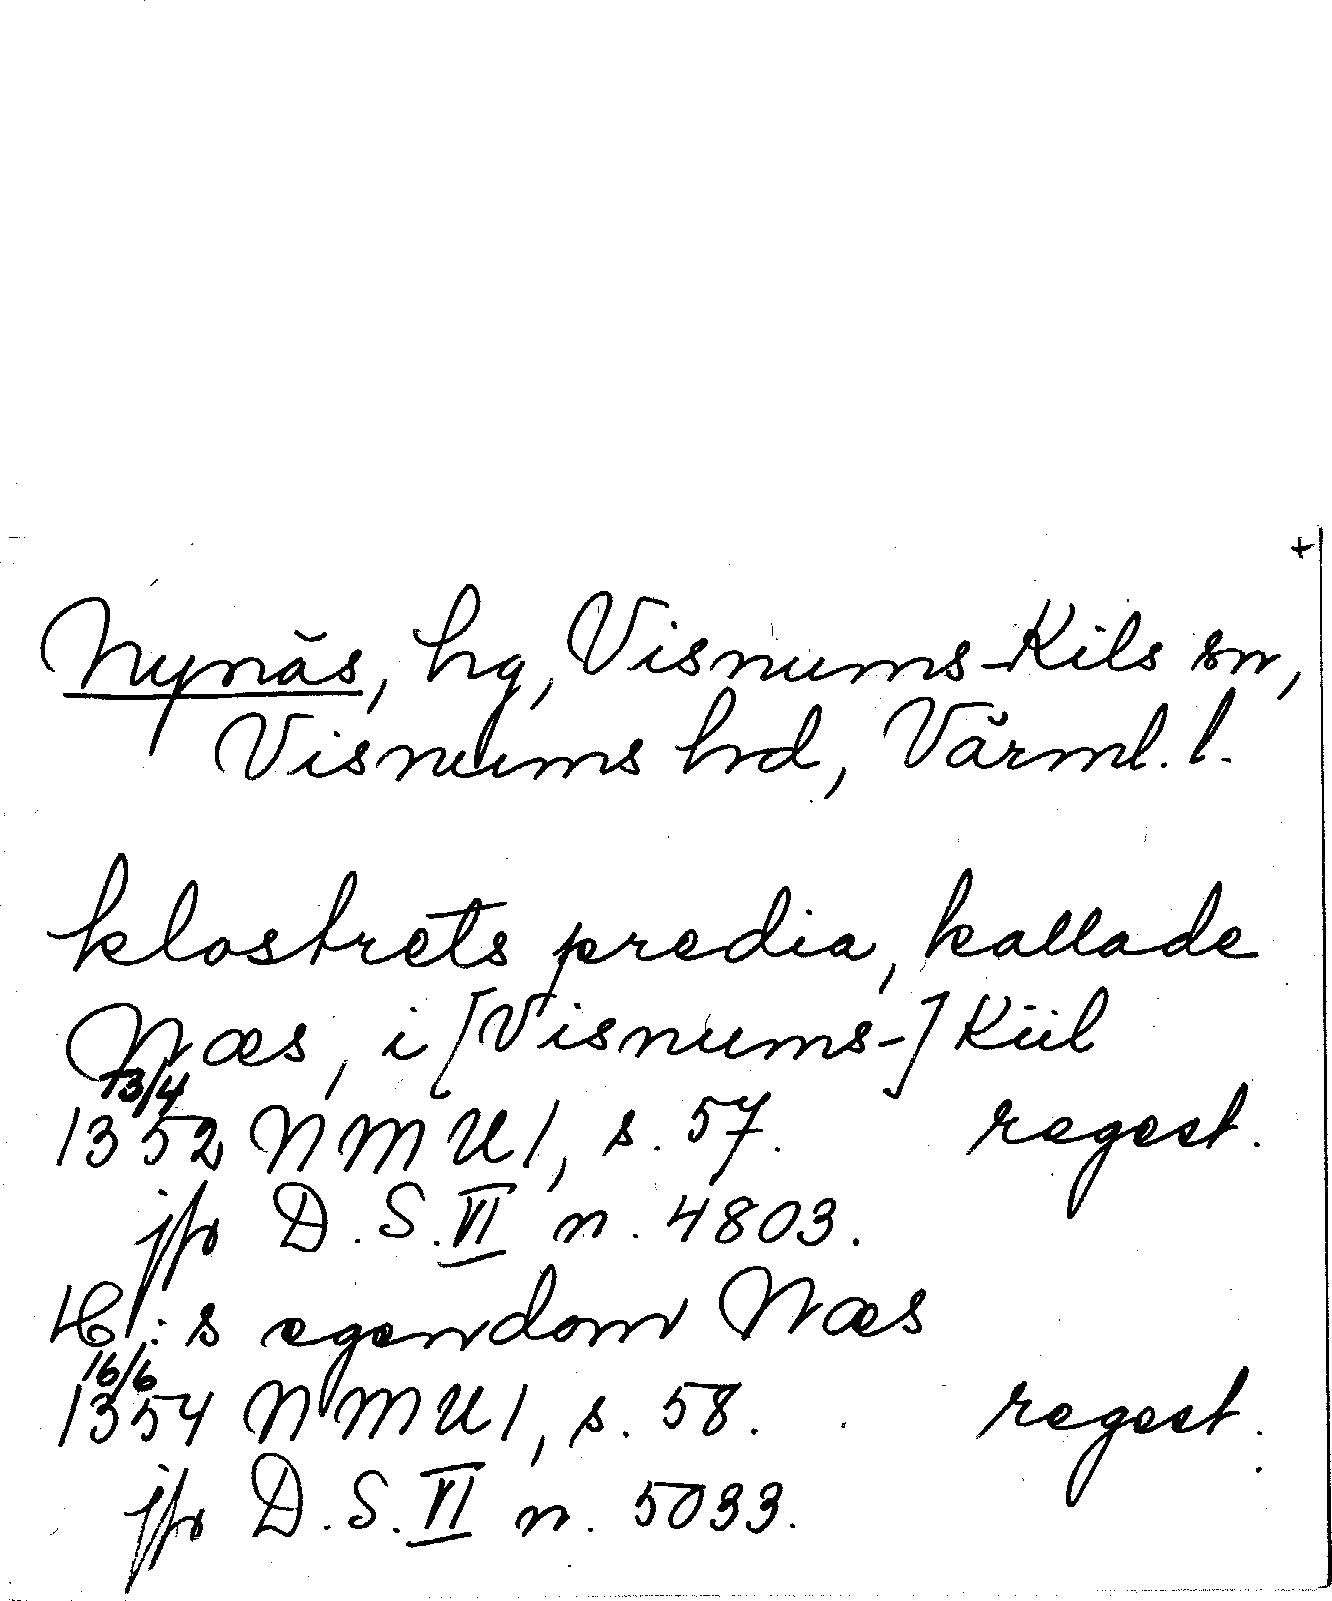 +
Nynäs, hg, Visnums-Kils sn,
Visnums hrd, Värml. l.
klostrets predia, kallade
Næs, i [Visnums-] Kiil
13/4
1352 NMU1, s. 57. regest.
jfr D.S. VI n. 4803.
:s egendom Næs
16/6
1354 NMU1, s. 58. regest.
jfr D.S. VI n. 5033.